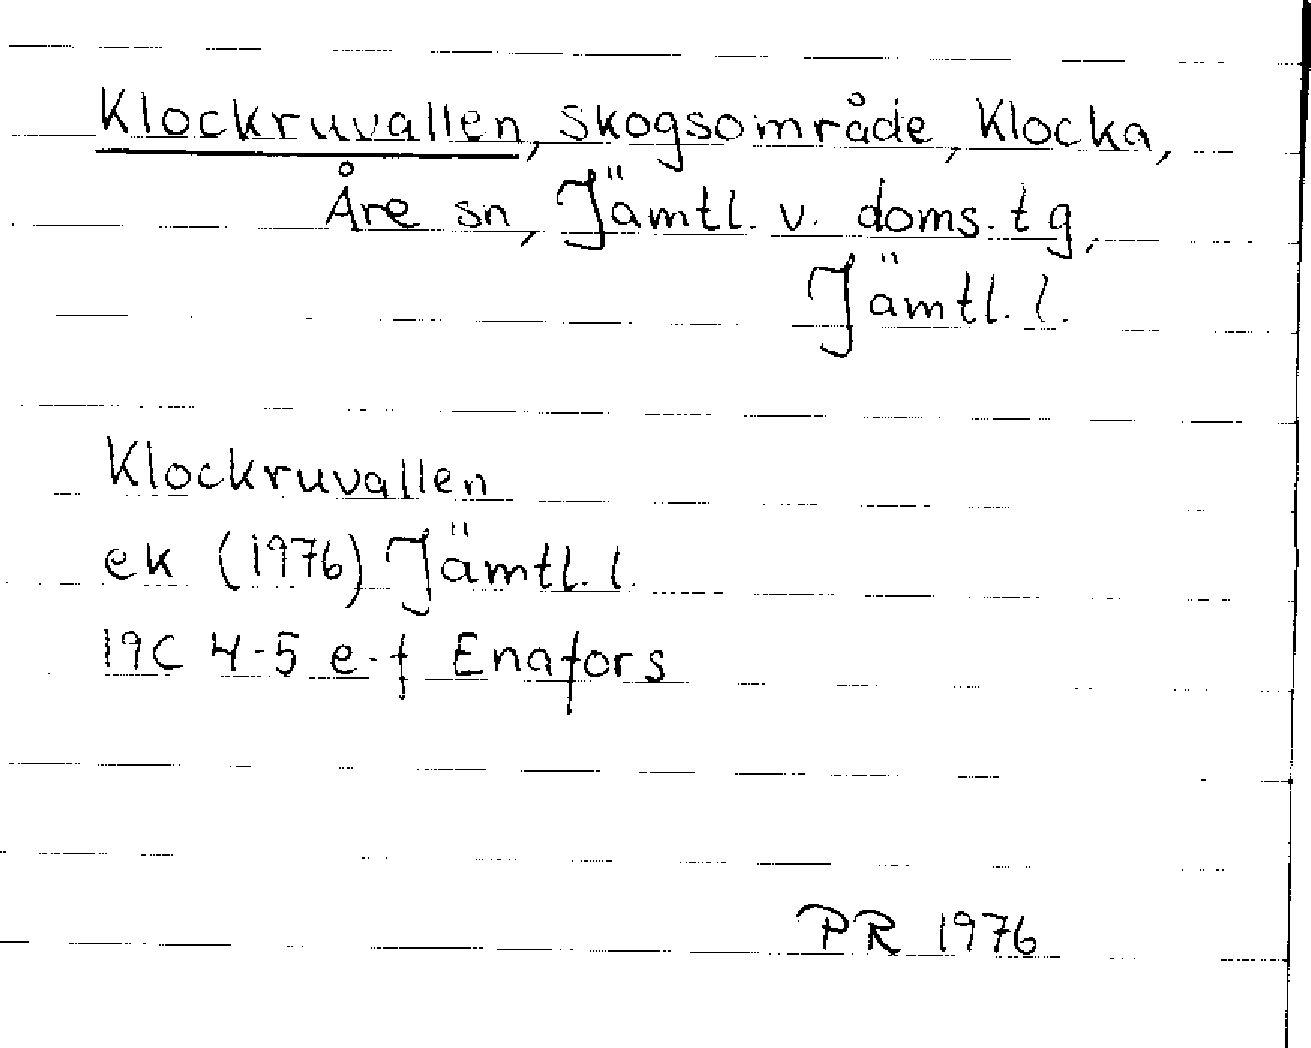 Klockruvallen, skogsområde, Klocka,
Åre sn, Jämtl. v. doms. tg,
Jämtl. l.
Klockruvallen
ek (1976) Jämtl. l.
19C 4-5 e-f Enafors
PR 1976